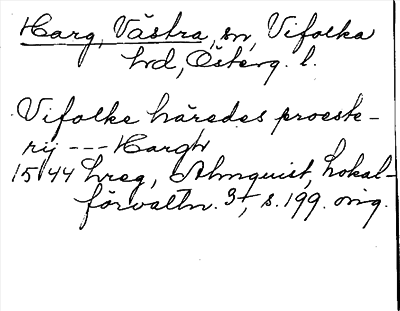 Harg, Västra, sn, Vifolka
hd, Österg. l.
Vifolke häredes proeste-
rij --- Hargh
1544 hreg, Almquist, Lokal-
förvaltn. 3, s. 199. orig.